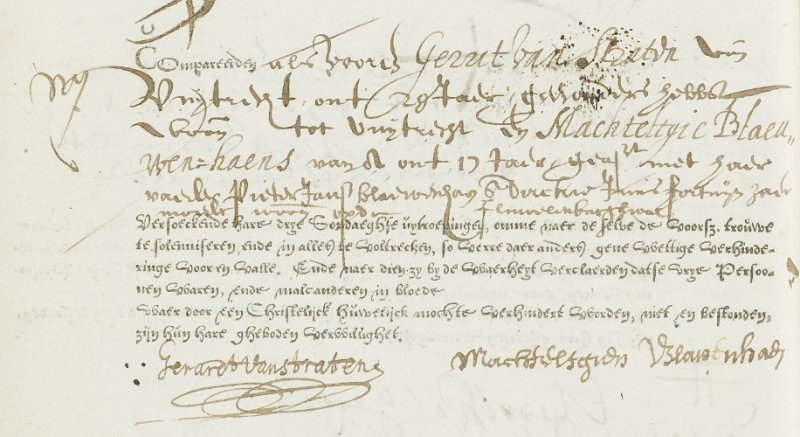 Comparerden als vooren Gerrit van Straten van
Vuytrecht, out 25 Jaer, geen ouders hebb.
woon. tot Vuytrecht en Machteltgie Blaeu
wen=haens van A out 17 Jaer, geas. met haer
vader Pieter Jans blaeuwenhaen en Jnnis fortuijn haer
moeder woon.
Versoeckende hare drye Sondaeghse uytroepingen, omme naer de selve de voorsz. trouwe
te solemniseren, ende in alles te voltrecken, so verre daer anders gene wettige verhinde-
ringe voor en valle. Ende naer dien zy by de waerheyt verclaerden datse vrye Persoo-
nen waren, ende malcanderen in bloede
Waer door een Christelijck Huwelijck mochte verhindert worden, niet en bestonden,
zijn hun hare gheboden verwillighet.
Gerardt Vanstraten Machtelsgien Blawenhaen